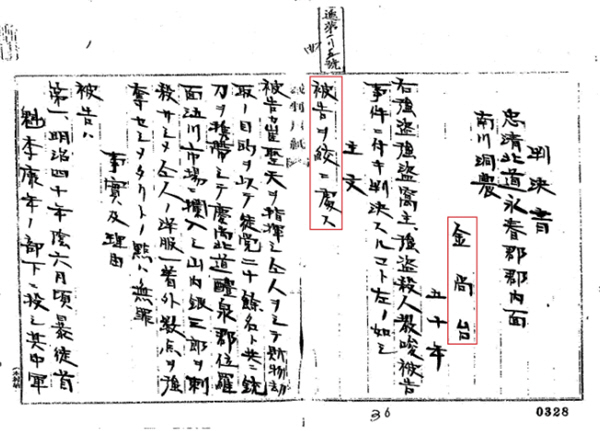 判決書
忠清北道永春郡郡内面
南川洞農
金尚台
五十年
右強盗強盗窩主、強盗殺人教唆被告
事件ニ付キ判決スルコト左ノ如シ
主文
被告ヲ絞ニ處ス
被告カ崔聖天ヲ指揮シ仝人ヲシテ財物劫
取ノ目的ヲ以テ徒党二十餘名ト共ニ銃
刀ヲ携帯シテ慶尚北道醴泉郡位羅
面浯川市場ニ攔入シ山内銀三郎ヲ刺
殺サシメ仝人ノ洋服一着外数点ヲ強
奪セシメタリトノ點ハ無罪
事實及理由
被告ハ
第一、明治四十年陰六月頃暴徒首
魁李康年ノ部下ニ投シ其中軍
36
0328